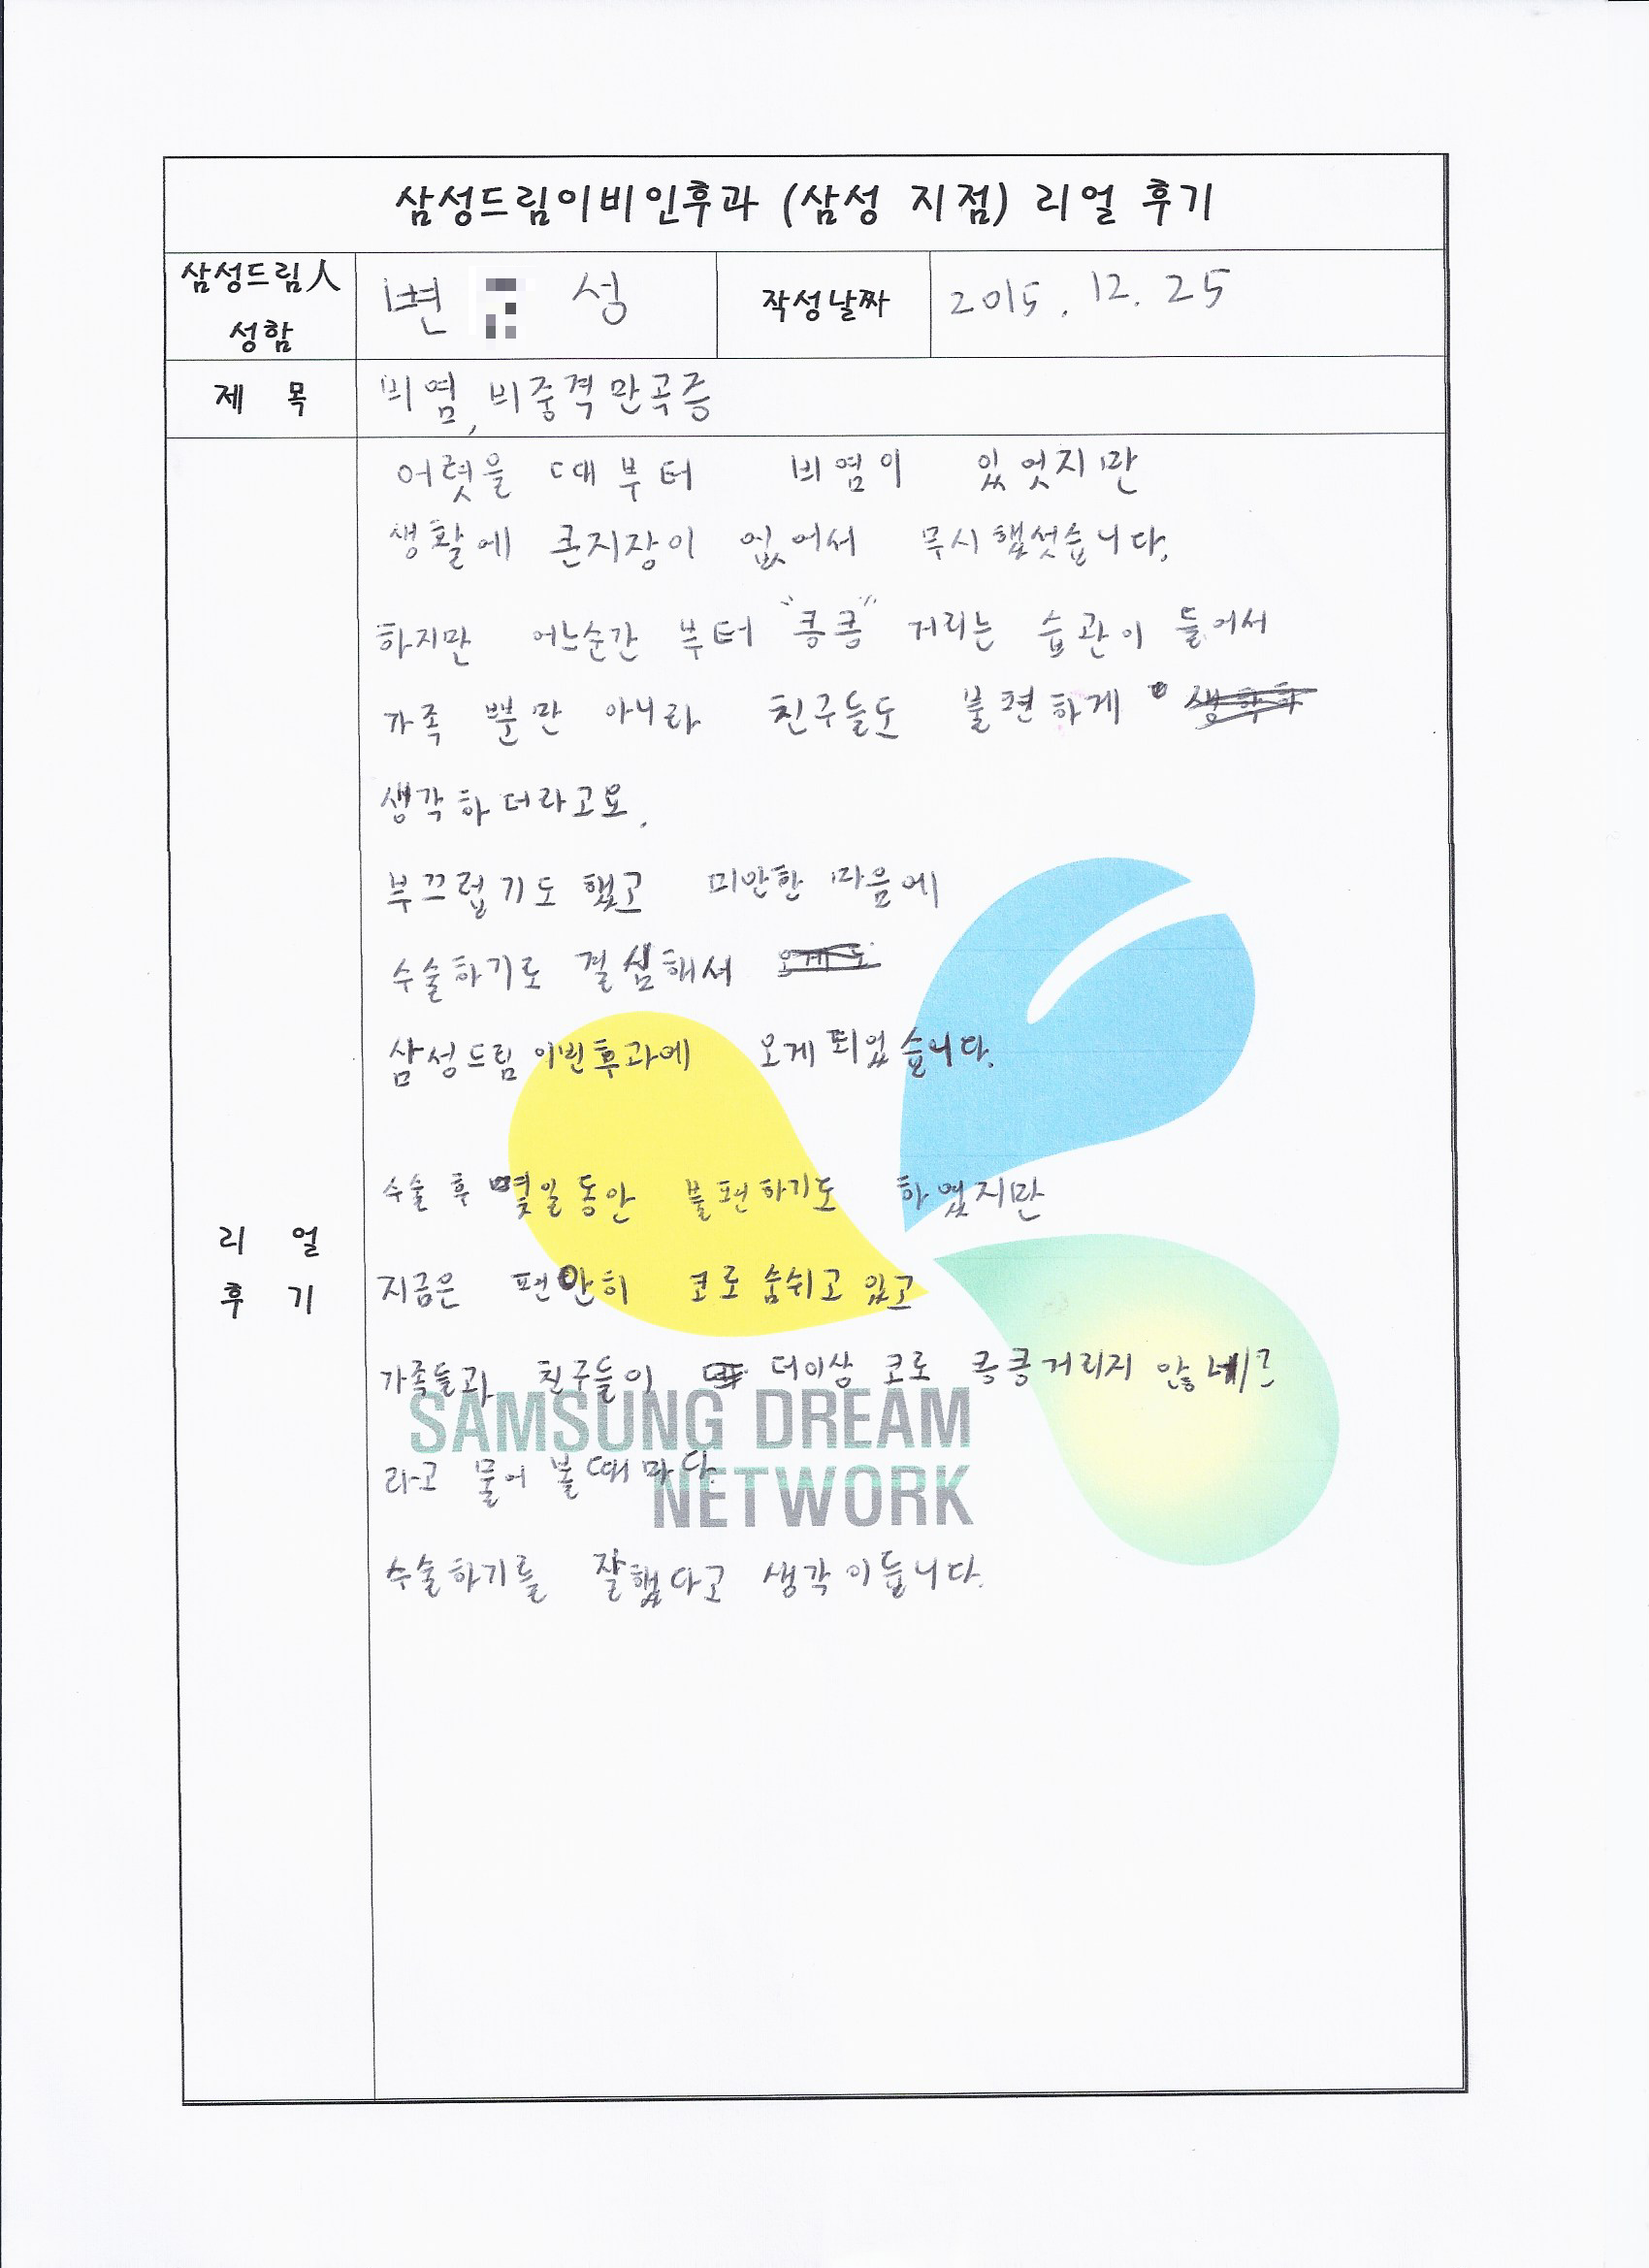 삼성드림이비인후과 (삼성 지점) 리얼 후기
삼성드림人 성함
변 성
작성날짜
2015. 12. 25
제 목
비염, 비중격만곡증
리 얼
후 기
어렷을 때부터 비염이 있엇지만
생활에 큰지장이 없어서 무시했섯습니다.
하지만 어느순간 부터 "킁킁" 거리는 습관이 들어서
가족 뿐만 아니라 친구들도 불편하게
생각하더라고요.
부끄럽기도 했고 미안한 마음에
수술하기로 결심해서
삼성드림 이빈후과에 오게 되었습니다.
수술 후 몇일동안 불편하기도 하였지만
지금은 편안히 코로 숨쉬고 있고
가족들과 친구들이 더이상 코로 킁킁거리지 않네?
라고 물어 볼때 마다
수술하기를 잘했다고 생각이듭니다.
SAMSUNG DREAM
NETWORK